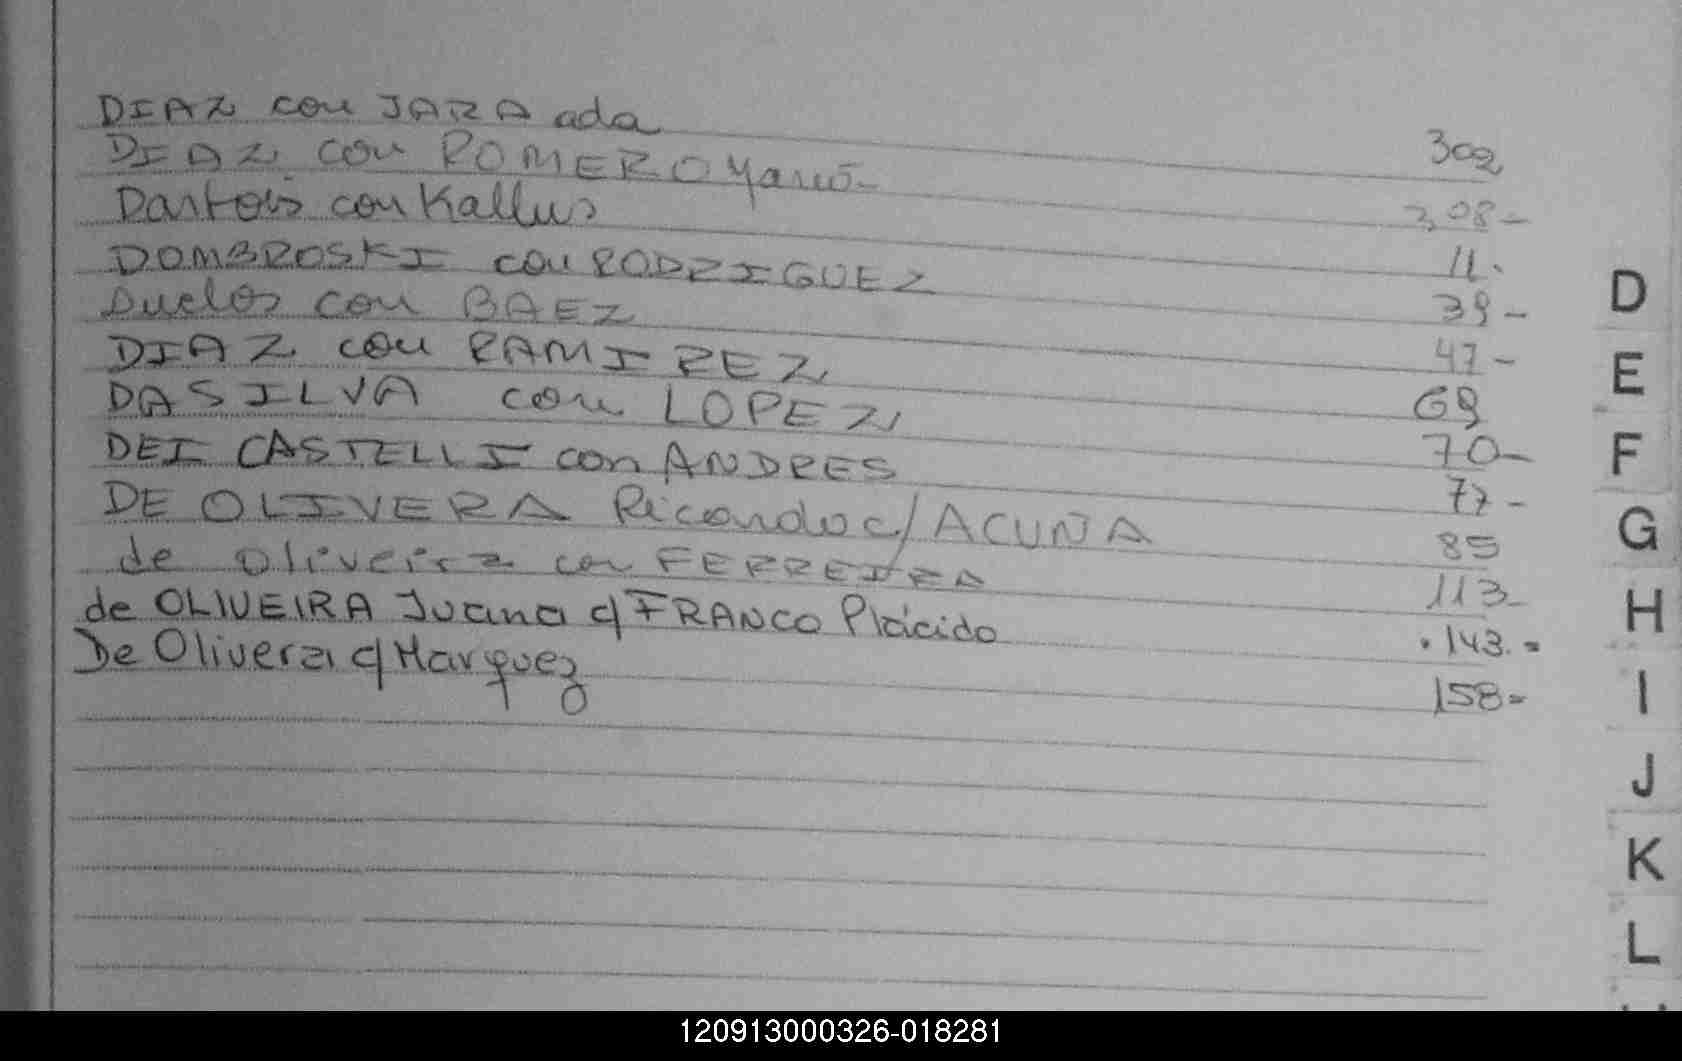 DIAZ con JARA ada 302
DIAZ con ROMERO 308-
Dartois con Kallus 11.
DOMBROSKI con RODRIGUEZ 39-
Duclos con BAEZ 47-
DIAZ con RAMIREZ 69
DASILVA con LOPEZ 70-
DEI CASTELLI con ANDRES 77-
DE OLIVERA Ricardo c/ ACUÑA 85
de Oliveira con FERREIRA 113-
de OLIVEIRA Juana c/ FRANCO Plácido .143.=
De Olivera c/ Marquez 158=
D
E
F
G
H
I
J
K
L
120913000326-018281